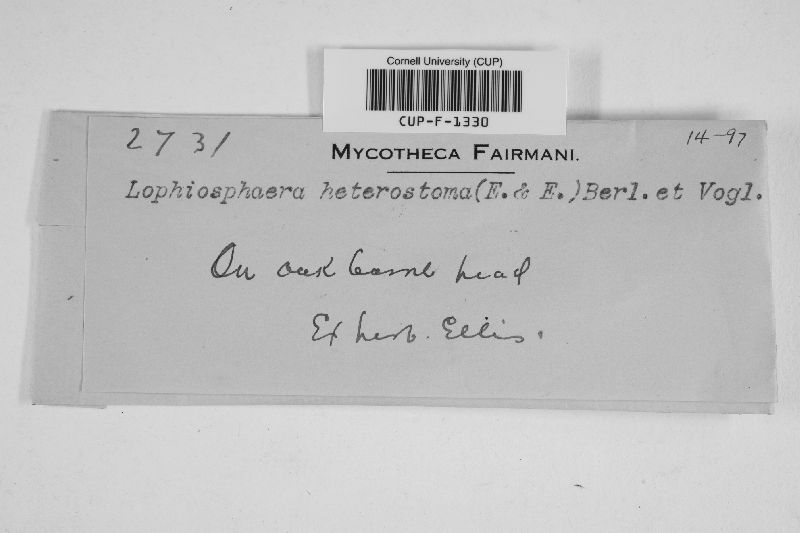 Cornell University (CUP)
CUP-F-1330
2731
14-97
MYCOTHECA FAIRMANI.
Lophiosphaera heterostoma(E.& E.)Berl.et Vogl.
On oak barrel head
Ex herb. Ellis.